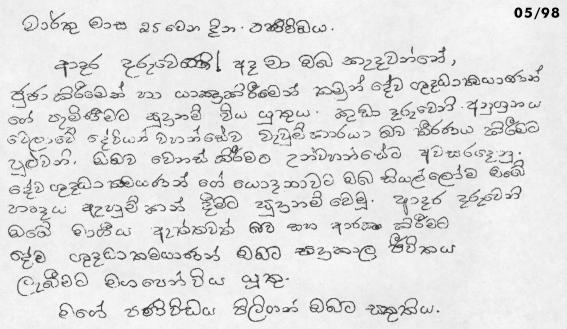 05/98
මාර්තු මාස 25 වෙන දින. පණිවිඩය.
ආදර දරුවෙනි! අද මා ඔබ කැඳවන්නේ,
පුජා කිරීමෙන් හා යාඥාකිරීමෙන් තමුන් දේව ශුද්ධාත්මයාණන්
ගේ පැමිණීමට සුදානම් විය යුතුය. කුඩා දරුවෙනි. අනුග්‍රහය
වෙලාවේ දේවියන් වහන්සේව වැවුම්කාරයා බව තීරණය කිරීමට
පුළුවනි. ඔබව වෙනස් කිරීමට උන්වහන්සේට අවසරදෙනු.
දේව ශුද්ධාත්මයාණන් ගේ යොදනාවට ඔබ සියල්ලෝම ඔබේ
හෘදය ඇහුම්කන් දීමට සුදානම් වෙමු. ආදර දරුවෙනි
ඔබේ මාශීය ඇත්තවත් බව සහ ආරක්ෂා කිරීමට
දේම ශුද්ධාත්මයාණන් ඔබට සදාකාල ජීවිතය
ලැබීමට මගපෙන්විය යුතු.
මගේ පණිවිඩය පිලිගත් ඔබට ස්තුතිය.